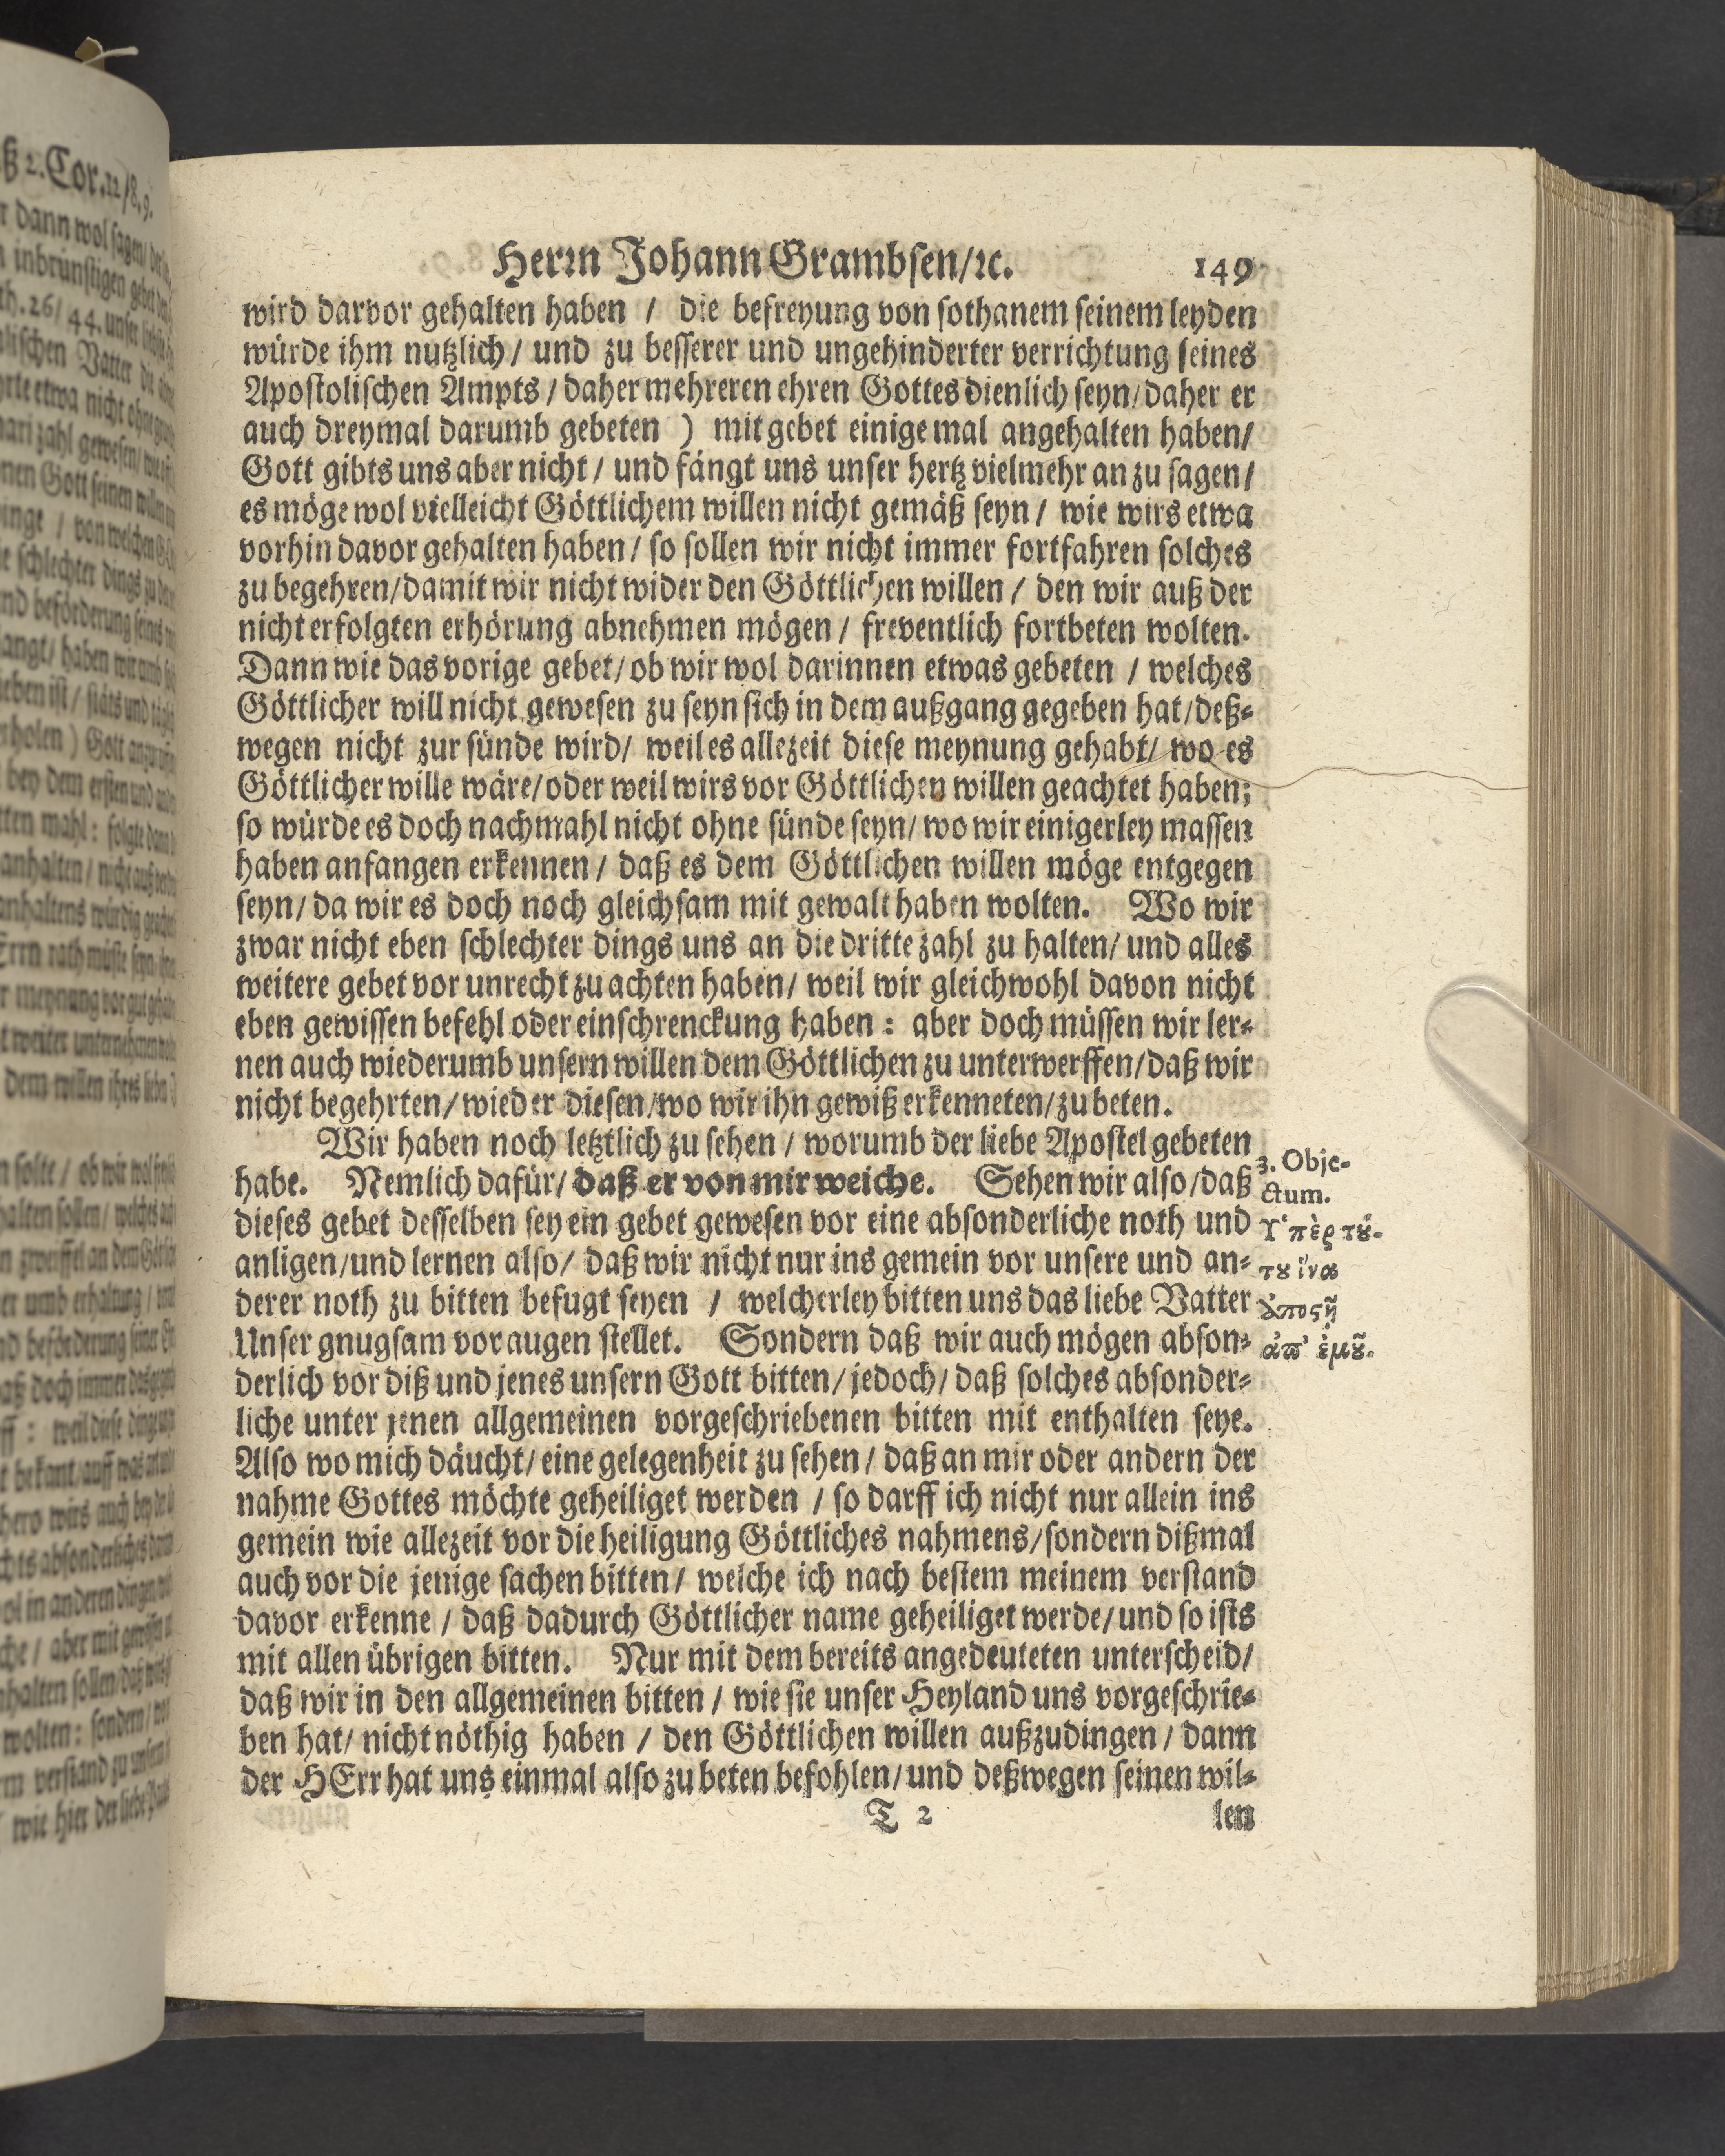 Herrn Johann Grambsen/ꝛc. 149
wird darvor gehalten haben / die befreyung von sothanem seinem leyden
würde ihm nutzlich / und zu besserer und ungehinderter verrichtung seines
Apostolischen Ampts / daher mehreren ehren Gottes dienlich seyn / daher er
auch dreymal darumb gebeten ) mit gebet einige mal angehalten haben/
Gott gibts uns aber nicht / und fängt uns unser hertz vielmehr an zu sagen /
es möge wol vielleicht Göttlichem willen nicht gemäß seyn / wie wirs etwa
vorhin davor gehalten haben / so sollen wir nicht immer fortfahren solches
zu begehren/damit wir nicht wider den Göttlichen willen / den wir auß der
nicht erfolgten erhörung abnehmen mögen / freventlich fortbeten wolten.
Dann wie das vorige gebet/ ob wir wol darinnen etwas gebeten / welches
Göttlicher will nicht gewesen zu seyn sich in dem außgang gegeben hat/deß-
wegen nicht zur sünde wird/ weil es allezeit diese meynung gehabt/ wo es
Göttlicher wille wäre/oder weil wirs vor Göttlichen willen geachtet haben;
so würde es doch nachmahl nicht ohne sünde seyn/ wo wir einigerley massen
haben anfangen erkennen / daß es dem Göttlichen willen möge entgegen
seyn/ da wir es doch noch gleichsam mit gewalt haben wolten. Wo wir
zwar nicht eben schlechter dings uns an die dritte zahl zu halten/ und alles
weitere gebet vor unrecht zu achten haben/ weil wir gleichwohl davon nicht
eben gewissen befehl oder einschrenckung haben : aber doch müssen wir ler-
nen auch wiederumb unsern willen dem Göttlichen zu unterwerffen/daß wir
nicht begehrten/ wieder diesen/wo wir ihn gewiß erkenneten/zu beten.
Wir haben noch letztlich zu sehen / worumb der liebe Apostel gebeten
habe. Nemlich dafür/ daß er von mir weiche. Sehen wir also/daß
dieses gebet desselben sey ein gebet gewesen vor eine absonderliche noth und
anligen/und lernen also/ daß wir nicht nur ins gemein vor unsere und an-
derer noth zu bitten befugt seyen / welcherley bitten uns das liebe Vatter
Unser gnugsam vor augen stellet. Sondern daß wir auch mögen abson-
derlich vor diß und jenes unsern Gott bitten/ jedoch/ daß solches absonder-
liche unter jenen allgemeinen vorgeschriebenen bitten mit enthalten seye.
Also wo mich däucht/ eine gelegenheit zu sehen / daß an mir oder andern der
nahme Gottes möchte geheiliget werden / so darff ich nicht nur allein ins
gemein wie allezeit vor die heiligung Göttliches nahmens/sondern dißmal
auch vor die jenige sachen bitten/ welche ich nach bestem meinem verstand
davor erkenne / daß dadurch Göttlicher name geheiliget werde/und so ists
mit allen übrigen bitten. Nur mit dem bereits angedeuteten unterscheid/
daß wir in den allgemeinen bitten / wie sie unser Heyland uns vorgeschrie-
ben hat/ nicht nöthig haben / den Göttlichen willen außzudingen / dann
der HErr hat uns einmal also zu beten befohlen/und deßwegen seinen wil-
T 2 len
3. Obje-
ctum.
Υ῾πὲρ τȣ́-
τȣ ἵνα
ἀποςῇ
ἀπ' ἐμȣ̃.